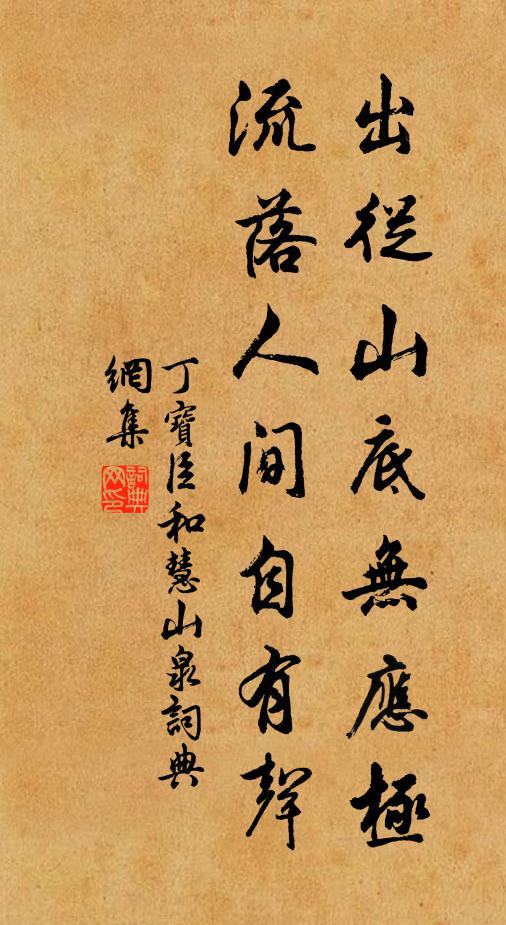 出從山底無應極
流落人間自有聲
丁寶臣和慧山泉詞典
網集
詞典
网印